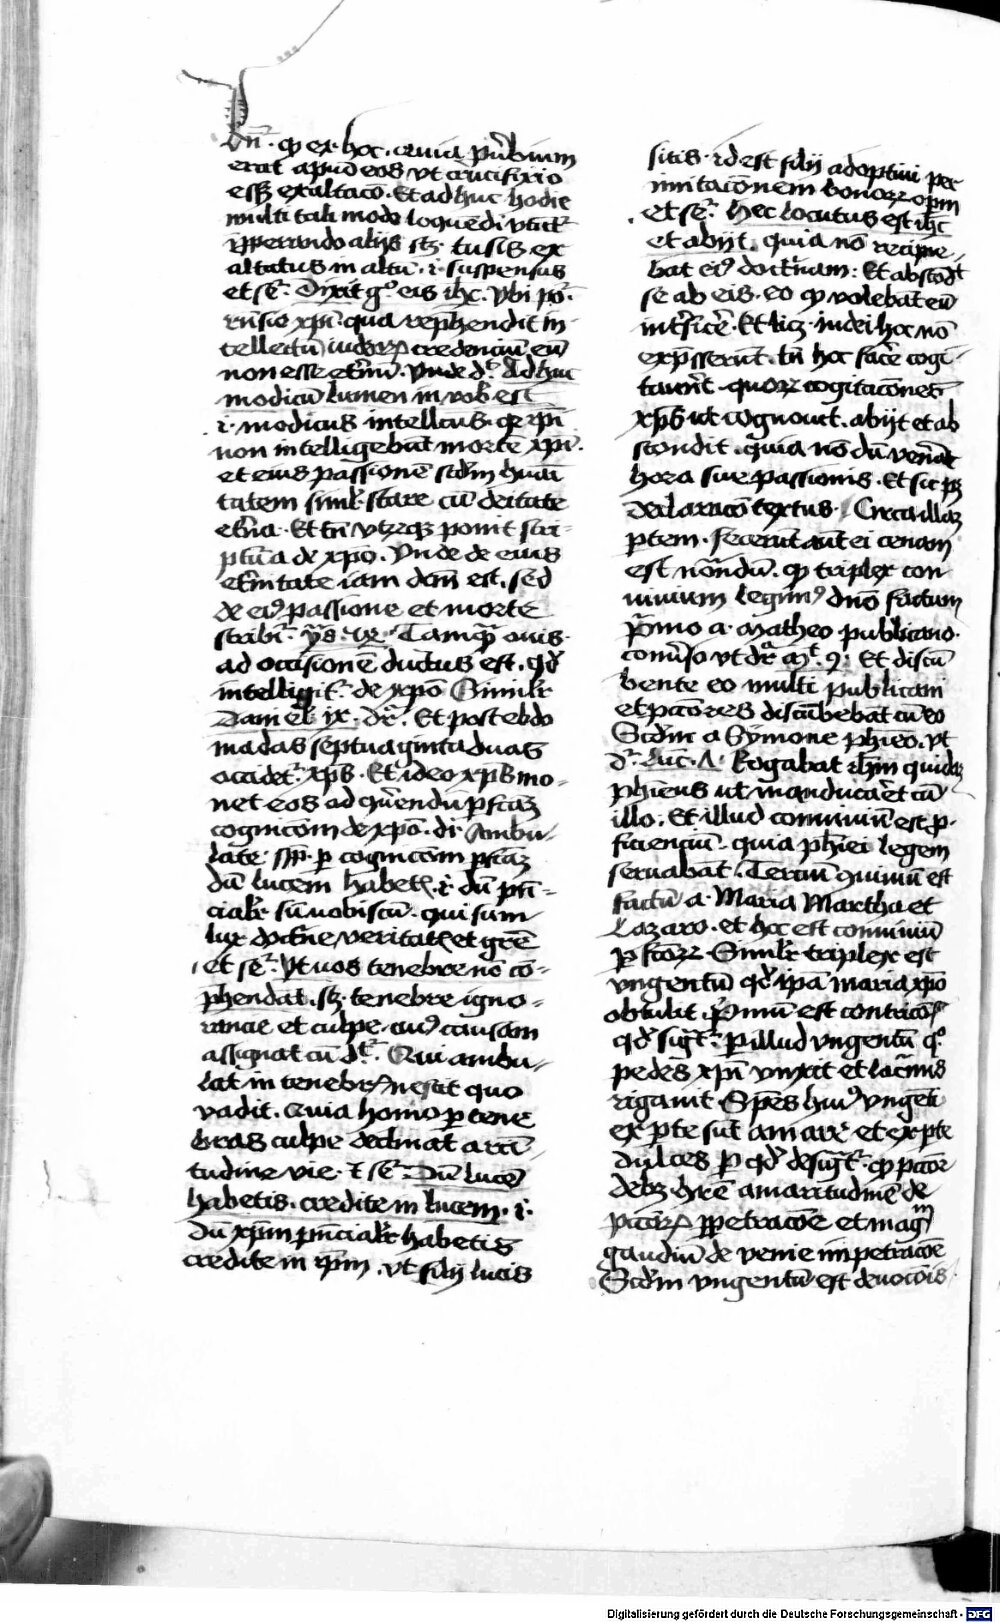 dn̄. ꝙ ex hoc. quia ꝓůbium
erat apud eos vt crucifixio
esset exaltacō. Et ad huc hodie
multi tali modo loquēdi vtūt̉
īperando alijs scꝫ tusis ex
altatus in altū. i. suspensus
et seͬ. Dixit gͦ eis ihc̄. Vbi pōͬ.
rn̄sio xp̄i qua rep̄hendit in
tellectū iudeoꝝ credenciū eū
non esse et̉nū. Vnde dͬ Ad huc
modicū lumen in vobͥ est
.i. modicus intellcūs. qꝛ xp̄i
non intelligebāt mortē xp̄i.
et eius passionē scd̄m hūai
tatem siml̉ stare cū deitate
et̉na. Et tn̄ vtrūqꝫ ponit scri
ptura de xp̄o. Vnde de eius
et̉nitate iam dcm̄ est. sed
de ei⁹ passione et morte
scribit̉. ys. Tamqͣ ouis
ad occisionē ductus est. qd̉
intelligit̉. de xp̄o Similr̄
Daniel ix. dͬ. Et post ebdo
madas septuaginta duas
occidet̉. xp̄s. Et ideo xp̄s mo
net eos ad q̄rendū ꝑfc̄aꝫ
cognicōm de xp̄o. d. Ambu
late. ꝑ cognicōm ꝑfc̄aꝫ
dū lucem habetꝭ. i. dū pn̄
cialr̄ sū vobiscū. qui sum
lux doctrīe veritatꝭ et grē
et seͬ. Vt vos tenebre nō cō
phendāt. scꝫ tenebre igno
rancie et culpe. cui⁹ causam
assignat cū dͬ. Qui ambu
lat in tenebrꝭ nescit quo
vadit. Quia homo ꝑ tene
bras culpe declinat a recti
tudine vie. et seͬ. Dū lucē
habetis. credite in lucem. i.
dū xp̄m pn̄cialr̄ habetis
credite in xp̄m. vt filij lucis
sitis. id est filij adoptiui per
imitacōnem bonoꝝ opm̄
et seͬ. hec locutus est ihc̄
et abijt. quia nō recipie
bat ei⁹ doctͥnam. Et abscōdit
se ab eis. eo ꝙ volebāt eū
int̉ficē. Et licꝫ iudei hoc nō
exp̄sserunt. tn̄ hoc facē cogi
tauer̄t. quoꝝ cogitacōnes
xp̄s vt cognouit. abijt et ab
scondit. quia nō dū ven̉at
hora sue passionis. Et sic pꝫ
declaracō textus. Circa illaꝫ
ptem. fecerunt aut ei cenam
est notandū. ꝙ triplex con
uiuium legim⁹ dn̄o factum
Pͥmo a matheo publicano.
conu̓so vt dͬ mͭ. 9. Et discū
bente eo multi publicani
et pctōres discūbebāt cū eo
Scd̄m a Symone phīeo. vt
dͬ. Luc̄. Rogabat ihm̄ quidaꝫ
phīeus vt manducaret cū
illo. Et illud conuiuiū est ꝓ
ficienciū. quia phīei legem
seruabāt. Terciū ɔuiuiū est
factū a Maria Martha et
Lazaro. et hoc est conuiuiū
ꝑfc̄oꝝ. Similr̄ triplex est
vngentū qd̉ ipā maria xp̄o
obtulit. Pͥmū est contricōis
qd̉ sigͬ. ꝑ illud vngentū qͦ
pedes xp̄i vnxit et lacͥmis
rigauit. Spēs hui⁹ vngēti
ex ꝑte sūt amare et ex ꝑte
dulces ꝑ qd̉ desigͬ. ꝙ pctōr
debꝫ h̄re amaritudinē de
pctōꝝ ꝑpetracōe et magm̄
gaudiū de venie impetracōe
Scd̄m vngentū est deuocōis